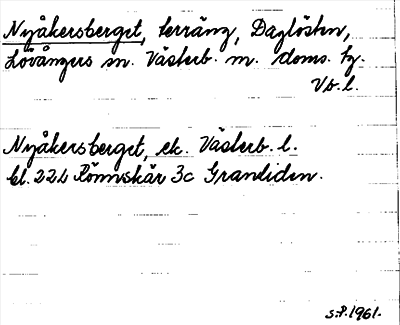 Nyåkersberget, terräng, Daglösten,
Lövångers sn. Västerb. m. doms. tg.
Vb. l.
Nyåkersberget, ek. Västerb. l.
bl. 22L Rönnskär 3c Granliden.
s.P. 1961.